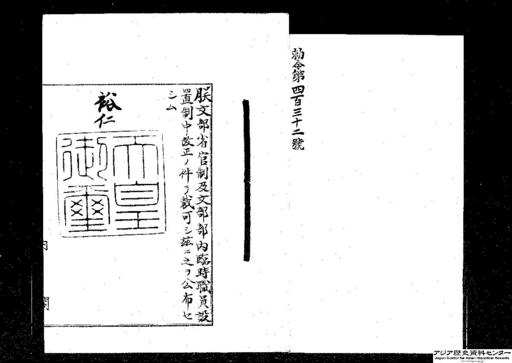 勅令第四百三十二號
朕文部省官制及文部部內臨時職員設
置制中改正ノ件ヲ裁可シ茲ニ之ヲ公布セ
シム
裕仁
天皇
御璽
アジア歴史資料センター
Japan Center for Asian Historical Records